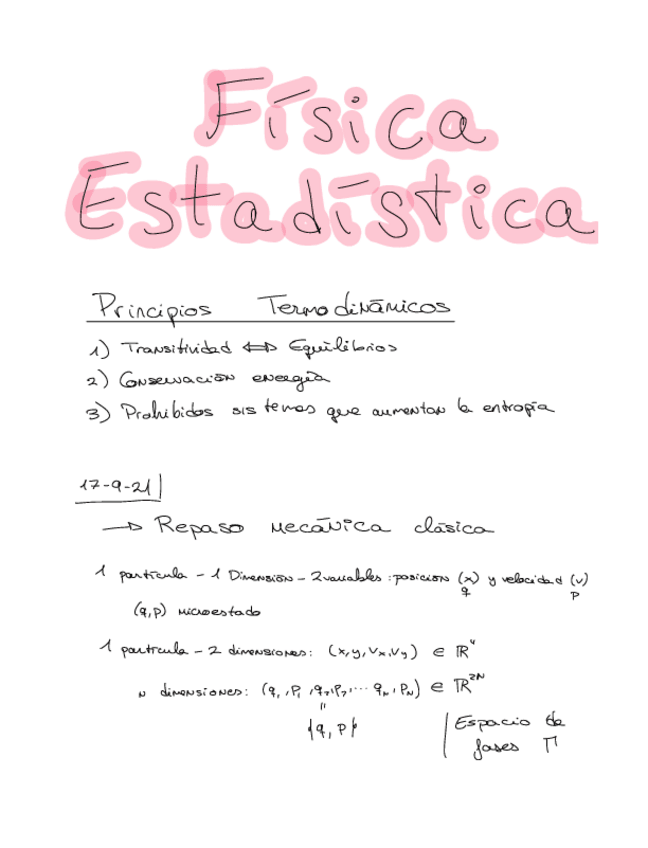 Física
Estadística
Principios Termodinámicos
1) Transitividad ⟺ Equilibrios
2) Conservación energía
3) Prohibidos sistemas que aumentan la entropía
17-9-21
→ Repaso mecánica clásica
1 partícula - 1 Dimensión - 2 variables: posición (x) y velocidad (v)
q p
(q,p) microestado
1 partícula - 2 dimensiones: (x,y,vx,vy) ∈ ℝ⁴
N dimensiones: (q₁,p₁,q₂,p₂,... qN,pN) ∈ ℝ²ᴺ
"
{q,p}
Espacio de
fases Γ